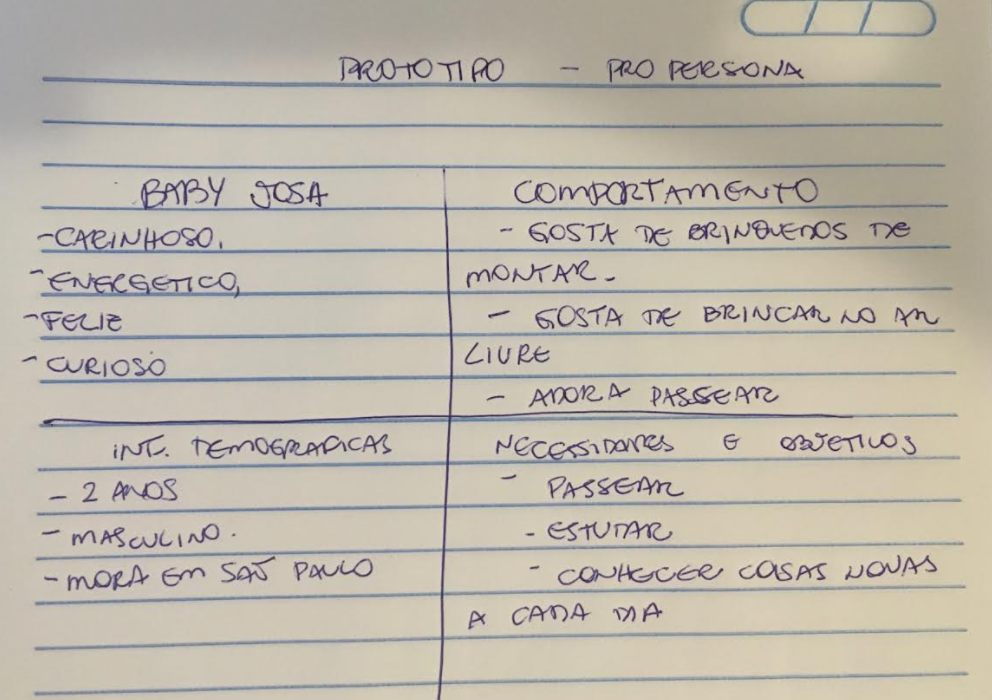 PROTOTIPO - PRO PERSONA
BABY JOSA
-CARINHOSO,
-ENERGETICO,
-FELIZ
-CURIOSO
COMPORTAMENTO
- GOSTA DE BRINQUEDOS DE
MONTAR.
- GOSTA DE BRINCAR NO AR
LIVRE
- ADORA PASSEAR
INF. DEMOGRAFICAS
- 2 ANOS
- MASCULINO.
- MORA EM SAO PAULO
NECESSIDADES E OBJETIVOS
- PASSEAR
- ESTUDAR
- CONHECER COISAS NOVAS
A CADA DIA